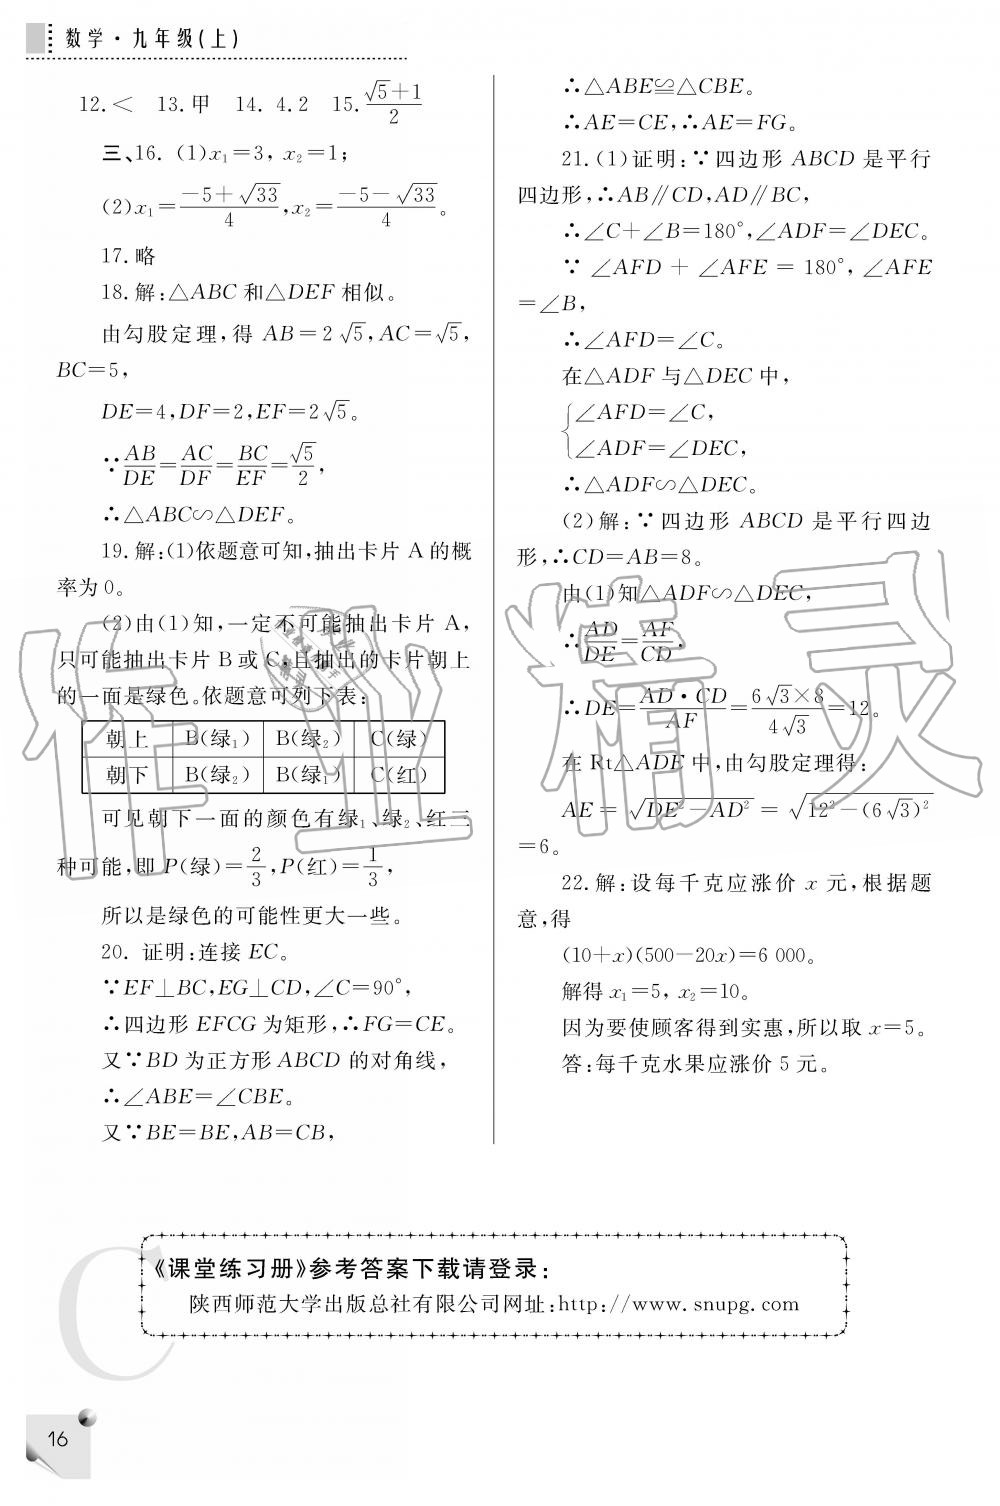 数学·九年级(上)
12.< 13.甲 14. 4.2 15.(√5+1)/2
三、16. (1)x₁=3, x₂=1;
(2)x₁=(-5+√33)/4,x₂=(-5-√33)/4。
17.略
18.解:△ABC和△DEF相似。
由勾股定理,得 AB=2√5,AC=√5,
BC=5,
DE=4,DF=2,EF=2√5。
∵AB/DE=AC/DF=BC/EF=√5/2,
∴△ABC∽△DEF。
19.解:(1)依题意可知,抽出卡片 A 的概
率为 0。
(2)由(1)知,一定不可能抽出卡片 A,
只可能抽出卡片 B 或 C,且抽出的卡片朝上
的一面是绿色。依题意可列下表:
朝上 B(绿₁) B(绿₂) C(绿)
朝下 B(绿₂) B(绿₁) C(红)
可见朝下一面的颜色有绿₁、绿₂、红三
种可能,即 P(绿)=2/3,P(红)=1/3,
所以是绿色的可能性更大一些。
20. 证明:连接 EC。
∵EF⊥BC,EG⊥CD,∠C=90°,
∴四边形 EFCG 为矩形,∴FG=CE。
又∵BD 为正方形 ABCD 的对角线,
∴∠ABE=∠CBE。
又∵BE=BE,AB=CB,
∴△ABE≌△CBE。
∴AE=CE,∴AE=FG。
21.(1)证明:∵四边形 ABCD 是平行
四边形,∴AB∥CD,AD∥BC,
∴∠C+∠B=180°,∠ADF=∠DEC。
∵ ∠AFD + ∠AFE = 180°, ∠AFE
=∠B,
∴∠AFD=∠C。
在△ADF 与△DEC 中,
{∠AFD=∠C,
∠ADF=∠DEC,
∴△ADF∽△DEC。
(2)解:∵四边形 ABCD 是平行四边
形,∴CD=AB=8。
由(1)知△ADF∽△DEC,
∴AD/DE=AF/CD,
∴DE=AD·CD/AF=6√3×8/4√3=12。
在 Rt△ADE 中,由勾股定理得:
AE=√(DE²-AD²)=√(12²-(6√3)²)
=6。
22.解:设每千克应涨价 x 元,根据题
意,得
(10+x)(500-20x)=6 000。
解得 x₁=5, x₂=10。
因为要使顾客得到实惠,所以取 x=5。
答:每千克水果应涨价 5 元。
《课堂练习册》参考答案下载请登录:
陕西师范大学出版总社有限公司网址:http://www.snupg.com
C
16
作业精灵